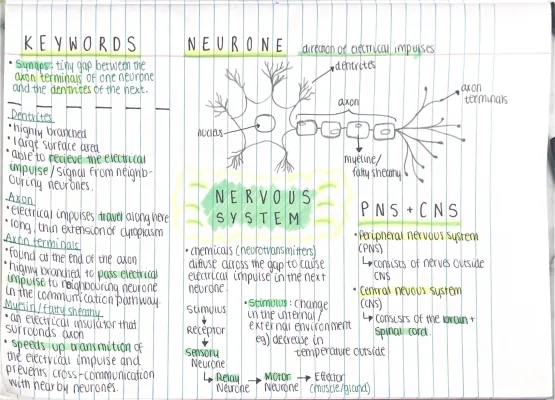 KEYWORDS
• Synaps: tiny gap between the
axon terminals of one neurone
and the dentrites of the next.
Dentrites
• highly branched
• large surface area
• able to recieve the electrical
impulse/signal from neighb-
ouring neurones.
Axon
• electrical impulses travel along here
• long, thin extension of cytoplasm
Axon terminals
• found at the end of the axon
• highly branched to pass electrical
impulse to neighbouring neurone
in the communication pathway
Myelin/fatty sheathy
• an electrical insulator that
surronds axon
• speeds up transmition of
the electrical impulse and
prevents cross-communication
with nearby neurones.
NEURONE
direction of electrical impulses
dentrites
axon
axon
terminals
nucleus
myeline/
fatty sheathy
NERVOUS
SYSTEM
• chemicals (neurotransmitters)
diffuse across the gap to cause
electrical impulse in the next
neurone.
Stimulus
↓
Receptor
↓
Sensory
Neurone
↳ Relay → Motor → Effector
Neurone Neurone (muscle/gland)
• Stimulus: change
in the internal/
external environment
eg) decrease in
temperature outside
PNS + CNS
• Peripheral nervous system
(PNS)
↳ consists of nerves outside
CNS
• Central nevous system
(CNS)
↳ consists of the brain +
spinal cord.